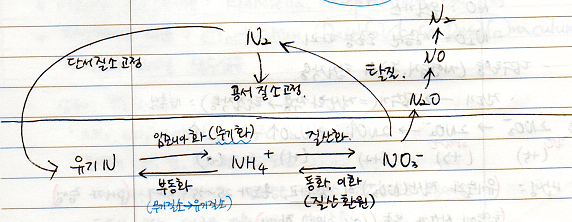 N₂
N₂
NO
단서질소고정
탈질.
공서질소고정.
N₂O
암모니아화(무기화)
질산화
유기N
NH₄⁺
NO₃⁻
부동화
동화, 이화
(무기질소→유기질소)
(질산환원)